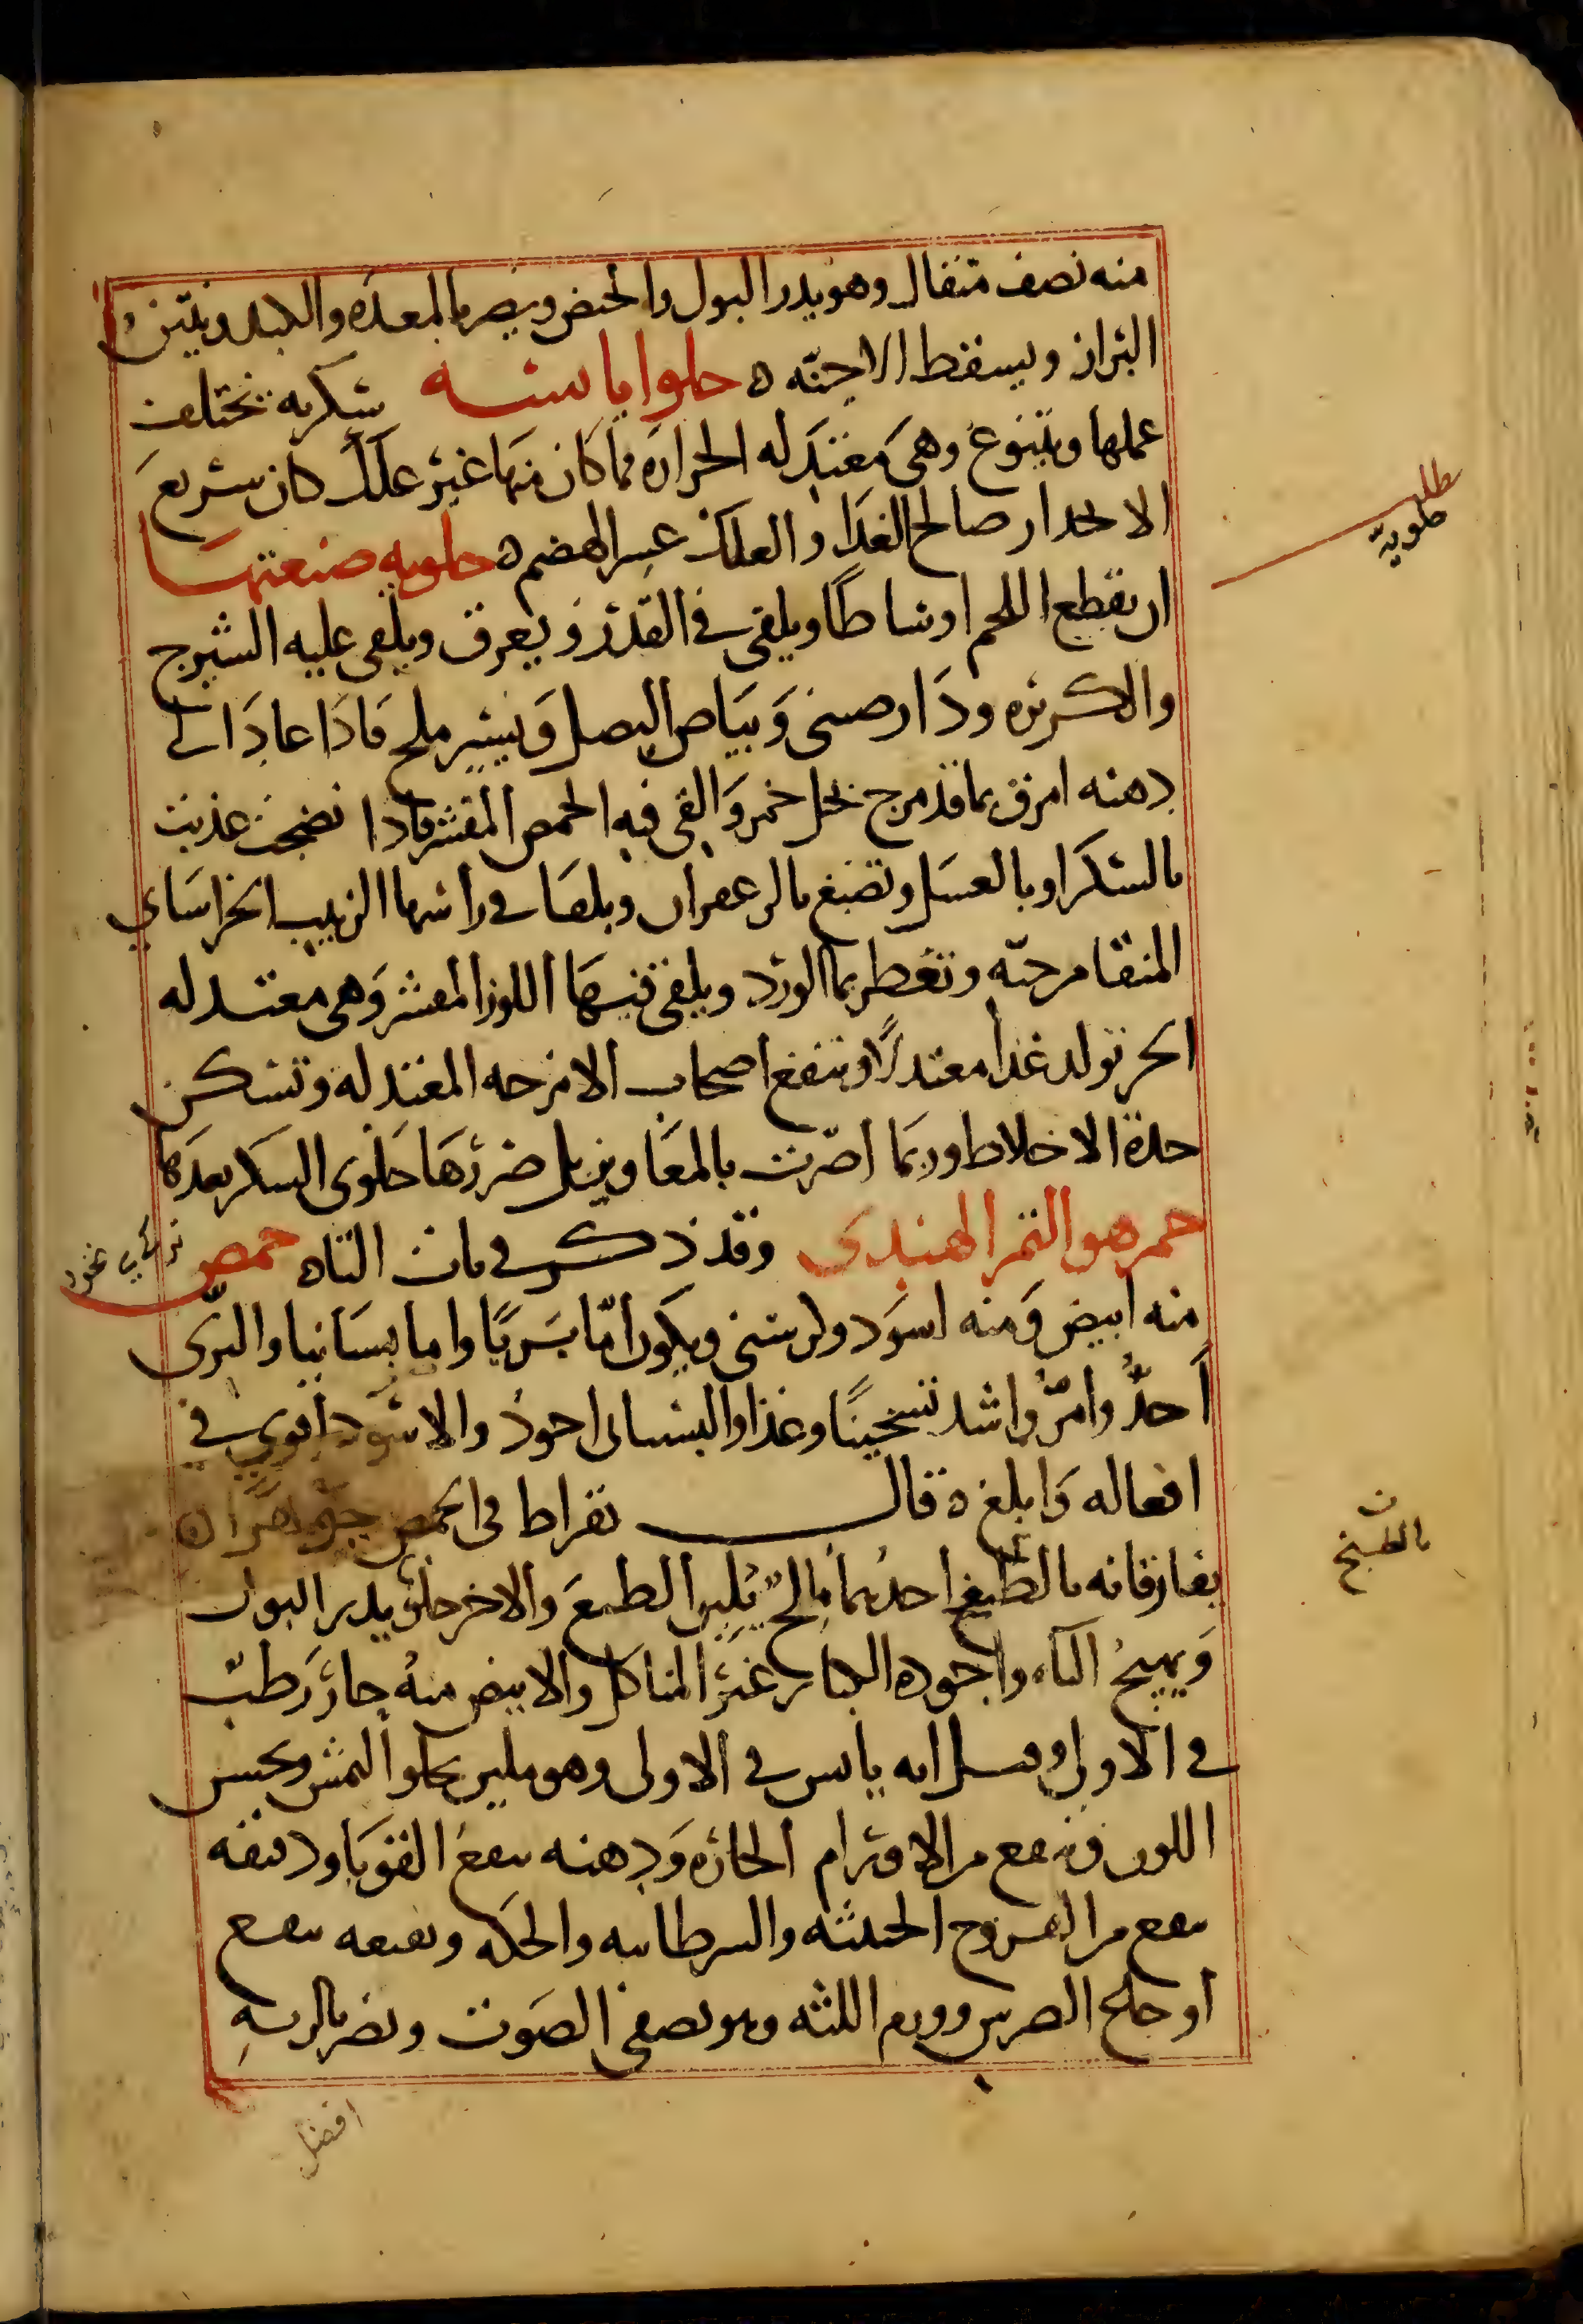 منه نصف مثقال وهو يدر البول والحيض ويضر بالمعده والكبد وينتن
البراز ويسقط الاجنّه ه حلوا يابسه سكريه تختلف
عملها ويتنوع وهى معتدله الحراره فما كان منها غير علك كان سريع
الانحدار صالح الغذا والعلك عسر الهضم ه حلويه صنعتها
ان يقطع اللحم اوساطًا ويلقى في القدر ويعرق ويلقى عليه الشيرج
والكسبره ودارصينى وبياض البصل ويسير ملح فاذا عاد الى
دهنه امرق بما قد مزج بخل خمر والقى فيه الحمص المقشر فاذا نضجت عذبت
بالسكر او بالعسل وتصبغ بالزعفران ويلقا في راسها الزبيب الخراساني
المنقا من حبّه وتعطر بما الورد ويلقى فيها اللوز المقشر وهى معتدله
الحر تولد غذا معتدلًا وتنفع اصحاب الامزجه المعتدله وتسكن
حدة الاخلاط وربما اضرّت بالمعا ويزيل ضررها حلوى السكر بعدها
حمر هو التمر الهندى وقد ذكر في باب التاه حمص
منه ابيض ومنه اسود وكرسنى ويكون امّا بريًا واما بستانيا والبرّى
أحدُّ وأمرُّ واشد تسخينًا وغذا والبستانى اجود والاسود اقوى في
افعاله وابلغ ه قال بقراط فى الحمص جوهران
يفارقانه بالطبخ احدهما مالحٌ يُلين الطبع والاخر حلو يدر البول
ويهيجُ الباه واجوده الكبار غير المتاكل والابيض منه حار رطب
في الاولى وقيل انه يابس في الاولى وهو ملين يجلوا النمش ويحسن
اللون وينفع من الاورام الحاره ودهنه ينفع القوبا ودقيقه
ينفع من القروح الخبيثه والسرطانيه والحكه ونقيعه ينفع
اوجاع الضرس وورم اللثه وهو يصفى الصوت ويضر بالريه
حلويّه
بالطبخ
افضل